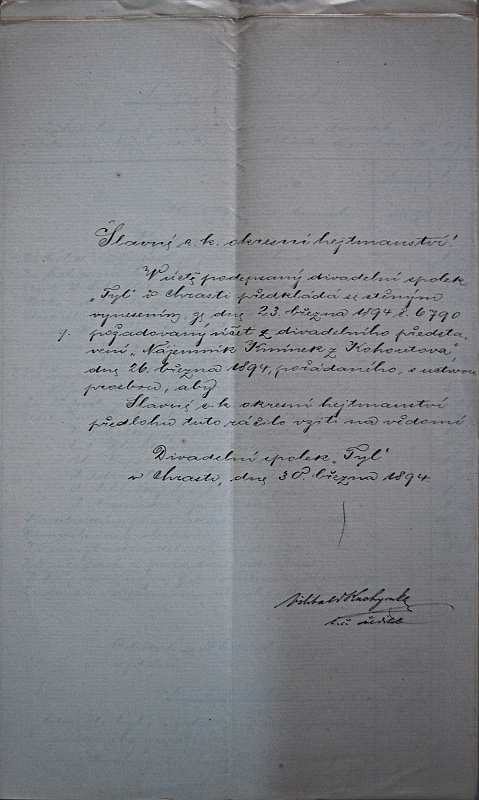 Slavné c. k. okresní hejtmanství!
V úctě podepsaný divadelní spolek
„Tyl" v Chrasti předkládá se ctěným
vynesením, ze dne 23. března 1894 č. 6790
požadovaný účet z divadelního předsta-
vení „Nájemník Kmínek z Kohoutova",
dne 26. března 1894, pořádaného, s uctivou
prosbou, aby
Slavné c. k. okresní hejtmanství
předlohu tuto ráčilo vzíti na vědomí
Divadelní spolek „Tyl"
v Chrasti, dne 30. března 1894.
t. č. ředitel